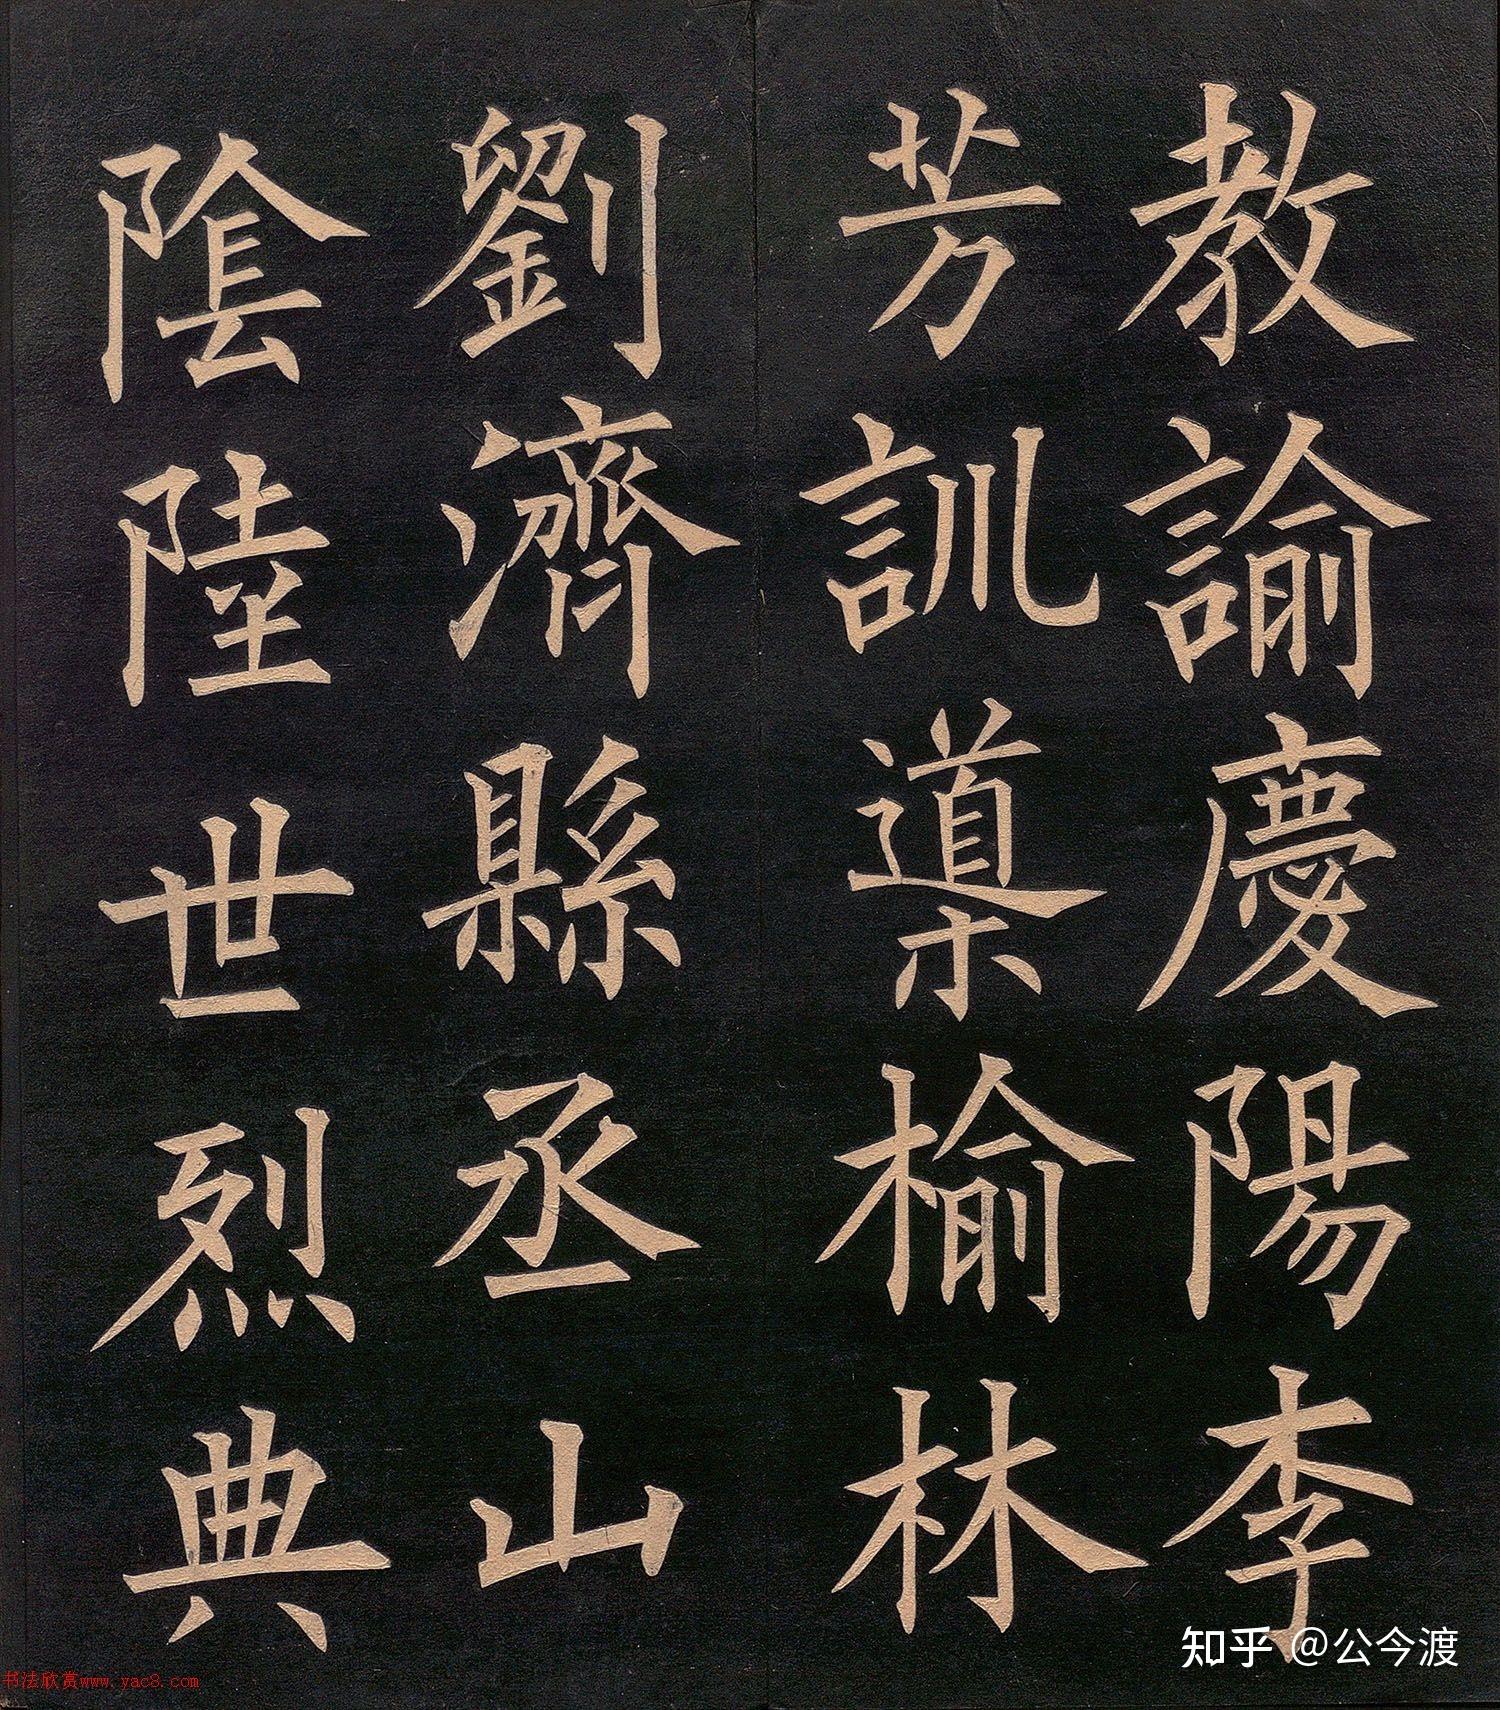 教諭慶陽李
芳訓導榆林
劉濟縣丞山
陰陸世烈典
知乎 @公今渡
书法欣赏www.yac8.com